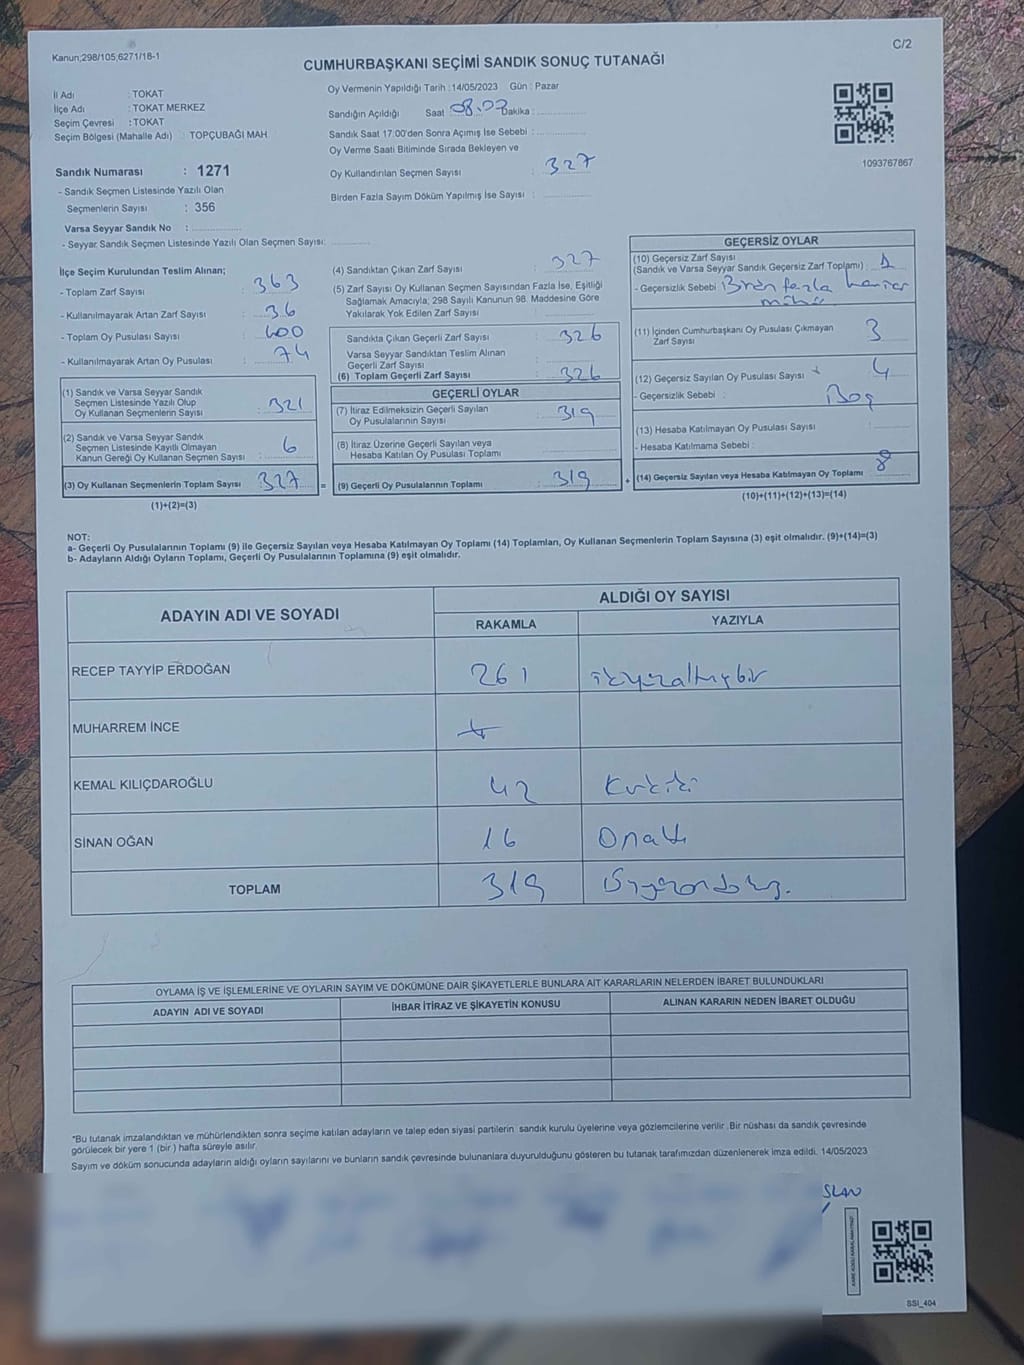 Kanun;298/105;6271/18-1
C/2
CUMHURBAŞKANI SEÇİMİ SANDIK SONUÇ TUTANAĞI
İl Adı : TOKAT
İlçe Adı : TOKAT MERKEZ
Seçim Çevresi : TOKAT
Seçim Bölgesi (Mahalle Adı) : TOPÇUBAĞI MAH.
Sandık Numarası : 1271
- Sandık Seçmen Listesinde Yazılı Olan
Seçmenlerin Sayısı : 356
Varsa Seyyar Sandık No :
- Seyyar Sandık Seçmen Listesinde Yazılı Olan Seçmen Sayısı:
Oy Vermenin Yapıldığı Tarih : 14/05/2023 Gün : Pazar
Sandığın Açıldığı Saat 08.00 Dakika :
Sandık Saat 17:00'den Sonra Açımış İse Sebebi :
Oy Verme Saati Bitiminde Sırada Bekleyen ve
Oy Kullandırılan Seçmen Sayısı : 327
Birden Fazla Sayım Döküm Yapılmış İse Sayısı :
1093767867
İlçe Seçim Kurulundan Teslim Alınan;
- Toplam Zarf Sayısı : 363
- Kullanılmayarak Artan Zarf Sayısı : 36
- Toplam Oy Pusulası Sayısı : 400
- Kullanılmayarak Artan Oy Pusulası : 74
(1) Sandık ve Varsa Seyyar Sandık
Seçmen Listesinde Yazılı Olup
Oy Kullanan Seçmenlerin Sayısı : 321
(2) Sandık ve Varsa Seyyar Sandık
Seçmen Listesinde Kayıtlı Olmayan
Kanun Gereği Oy Kullanan Seçmen Sayısı : 6
(3) Oy Kullanan Seçmenlerin Toplam Sayısı : 327 =
(1)+(2)=(3)
(4) Sandıktan Çıkan Zarf Sayısı : 327
(5) Zarf Sayısı Oy Kullanan Seçmen Sayısından Fazla İse, Eşitliği
Sağlamak Amacıyla; 298 Sayılı Kanunun 98. Maddesine Göre
Yakılarak Yok Edilen Zarf Sayısı :
Sandıkta Çıkan Geçerli Zarf Sayısı : 326
Varsa Seyyar Sandıktan Teslim Alınan
Geçerli Zarf Sayısı :
(6) Toplam Geçerli Zarf Sayısı : 326
GEÇERLİ OYLAR
(7) İtiraz Edilmeksizin Geçerli Sayılan
Oy Pusulalarının Sayısı : 319
(8) İtiraz Üzerine Geçerli Sayılan veya
Hesaba Katılan Oy Pusulası Toplamı
(9) Geçerli Oy Pusulalarının Toplamı : 319 +
GEÇERSİZ OYLAR
(10) Geçersiz Zarf Sayısı
(Sandık ve Varsa Seyyar Sandık Geçersiz Zarf Toplamı) : 1
- Geçersizlik Sebebi : fazla
mühür
(11) İçinden Cumhurbaşkanı Oy Pusulası Çıkmayan
Zarf Sayısı 3
(12) Geçersiz Sayılan Oy Pusulası Sayısı 4
- Geçersizlik Sebebi : Boş
(13) Hesaba Katılmayan Oy Pusulası Sayısı :
- Hesaba Katılmama Sebebi :
(14) Geçersiz Sayılan veya Hesaba Katılmayan Oy Toplamı : 8
(10)+(11)+(12)+(13)=(14)
NOT:
a- Geçerli Oy Pusulalarının Toplamı (9) ile Geçersiz Sayılan veya Hesaba Katılmayan Oy Toplamı (14) Toplamları, Oy Kullanan Seçmenlerin Toplam Sayısına (3) eşit olmalıdır. (9)+(14)=(3)
b- Adayların Aldığı Oyların Toplamı, Geçerli Oy Pusulalarının Toplamına (9) eşit olmalıdır.
ADAYIN ADI VE SOYADI
ALDIĞI OY SAYISI
RAKAMLA YAZIYLA
RECEP TAYYİP ERDOĞAN 261 ikiyüzaltmışbir
MUHARREM İNCE
KEMAL KILIÇDAROĞLU 42 Kırkiki
SİNAN OĞAN 16 Onaltı
TOPLAM 319 Üçyüzondokuz.
OYLAMA İŞ VE İŞLEMLERİNE VE OYLARIN SAYIM VE DÖKÜMÜNE DAİR ŞİKAYETLERLE BUNLARA AİT KARARLARIN NELERDEN İBARET BULUNDUKLARI
ADAYIN ADI VE SOYADI İHBAR İTİRAZ VE ŞİKAYETİN KONUSU ALINAN KARARIN NEDEN İBARET OLDUĞU
*Bu tutanak imzalandıktan ve mühürlendikten sonra seçime katılan adayların ve talep eden siyasi partilerin sandık kurulu üyelerine veya gözlemcilerine verilir. Bir nüshası da sandık çevresinde
görülecek bir yere 1 (bir ) hafta süreyle asılır.
Sayım ve döküm sonucunda adayların aldığı oyların sayılarını ve bunların sandık çevresinde bulunanlara duyurulduğunu gösteren bu tutanak tarafımızdan düzenlenerek imza edildi. 14/05/2023
SLAN
SSİ_404